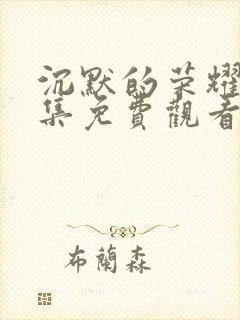 沉默的荣耀
集免費觀看
布蘭森